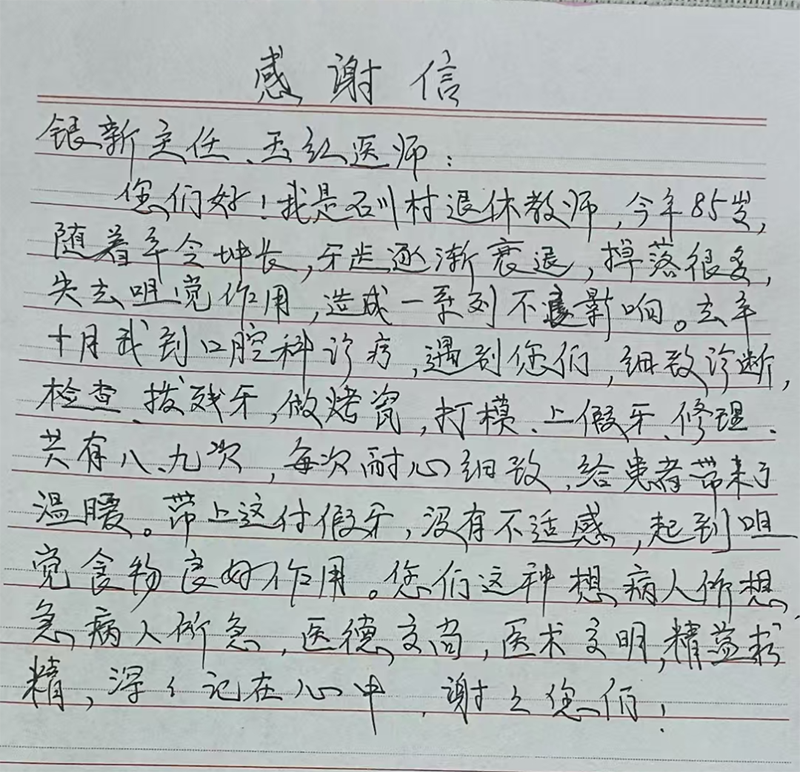 感谢信
银新主任、玉红医师：
您们好！我是石川村退休教师，今年85岁，
随着年令增长，牙齿逐渐衰退，掉落很多，
失去咀觉作用，造成一系列不良影响。去年
十月我到口腔科诊疗，遇到您们，细致诊断，
检查、拔残牙，做烤瓷，打模、上假牙、修理、
共有八、九次，每次耐心细致，给患者带来了
温暖。带上这付假牙，没有不适感，起到咀
觉食物良好作用。您们这种想病人所想，
急病人所急，医德高尚，医术文明，精益求
精，深々记在心中，谢々您们！